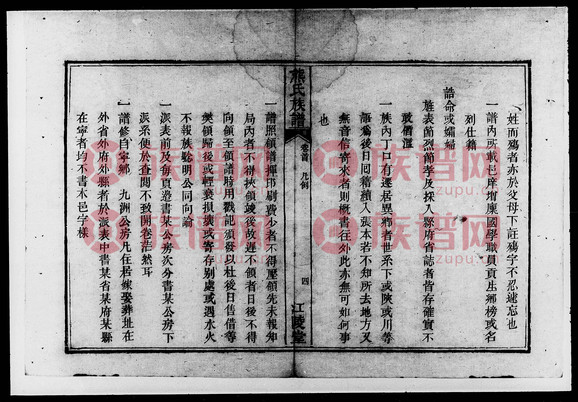 姓而殤者亦於父母下註殤字不忍遽忘也
一譜內所載邑庠增廩國學職員貢生鄉榜或名
列仕籍
誥命或孀婦
旌表節烈節孝及採入縣府省誌者皆存確實不
敢僭濫
一族內丁口有遷居異鄉者世系下或陝或川等
語爲後日回籍續入張本若不知所去地方又
無音信寄來者則概書往外此亦無可如何事
也
熊氏族譜
卷首 凡例
四
江陵堂
一譜照領譜擇印刷費少者不得壓領先未報知
局內者不得挾領竣後故遲不領者日後不得
向領至領譜時用戳記須發以杜後日售借等
獘領歸後或輕褻損壞或寄存別處或遇水火
不報族聰明公同向論
一派表前及每頁造書某公房次分書某公房下
派系便於查閱不致開卷茫然耳
一譜修自寧鄉 九洲公房凡住居嫁娶葬址在
外省外府外縣者於派表中書某省某府某縣
在寧者均不書本邑字樣
族譜网
zupu.cn